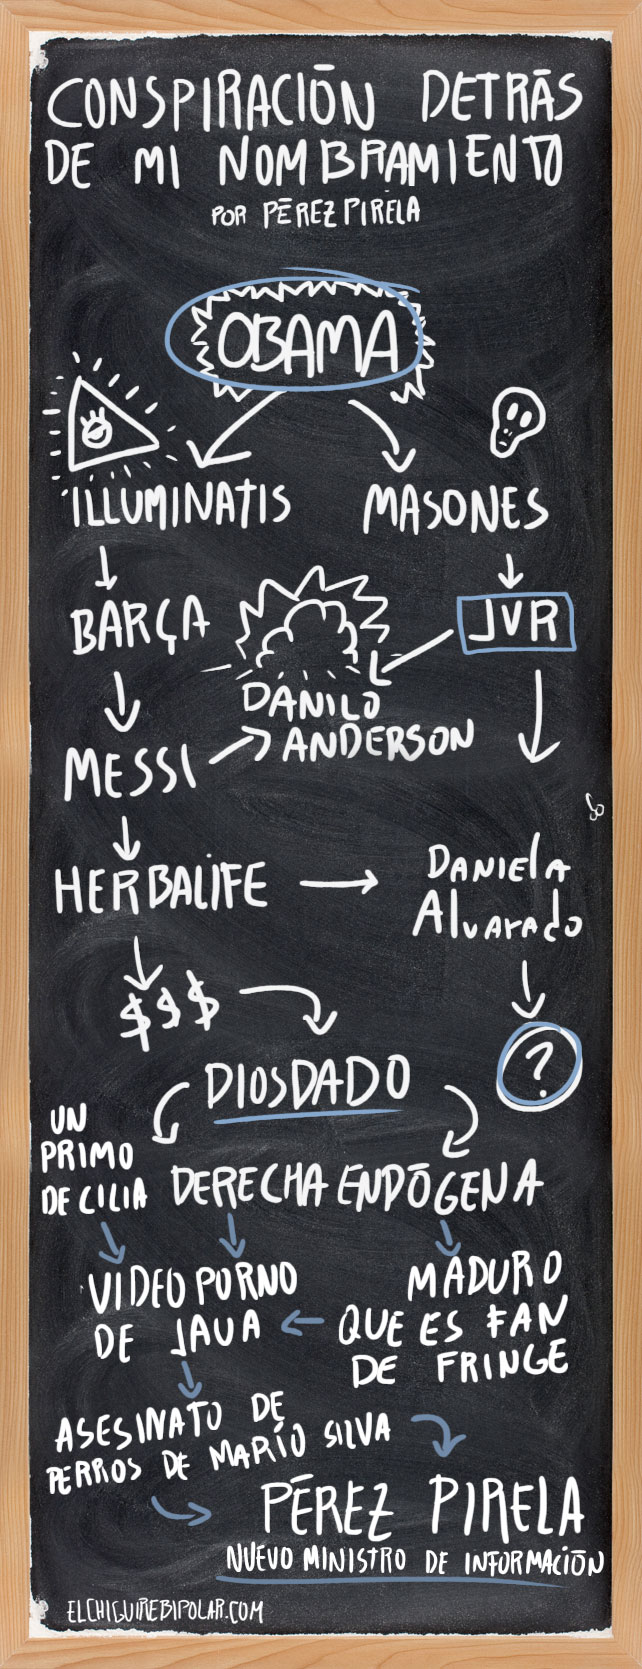 CONSPIRACIÓN DETRÁS
DE MI NOMBRAMIENTO
POR PÉREZ PIRELA
OBAMA
ILLUMINATIS
MASONES
BARÇA
JVR
DANILO
ANDERSON
MESSI
HERBALIFE
DANIELA
ALVARADO
$$$
?
DIOSDADO
UN
PRIMO
DE CILIA
DERECHA ENDÓGENA
VIDEO PORNO
DE JAUA
MADURO
QUE ES FAN
DE FRINGE
ASESINATO DE
PERROS DE MARIO SILVA
PÉREZ PIRELA
NUEVO MINISTRO DE INFORMACIÓN
ELCHIGUIREBIPOLAR.COM